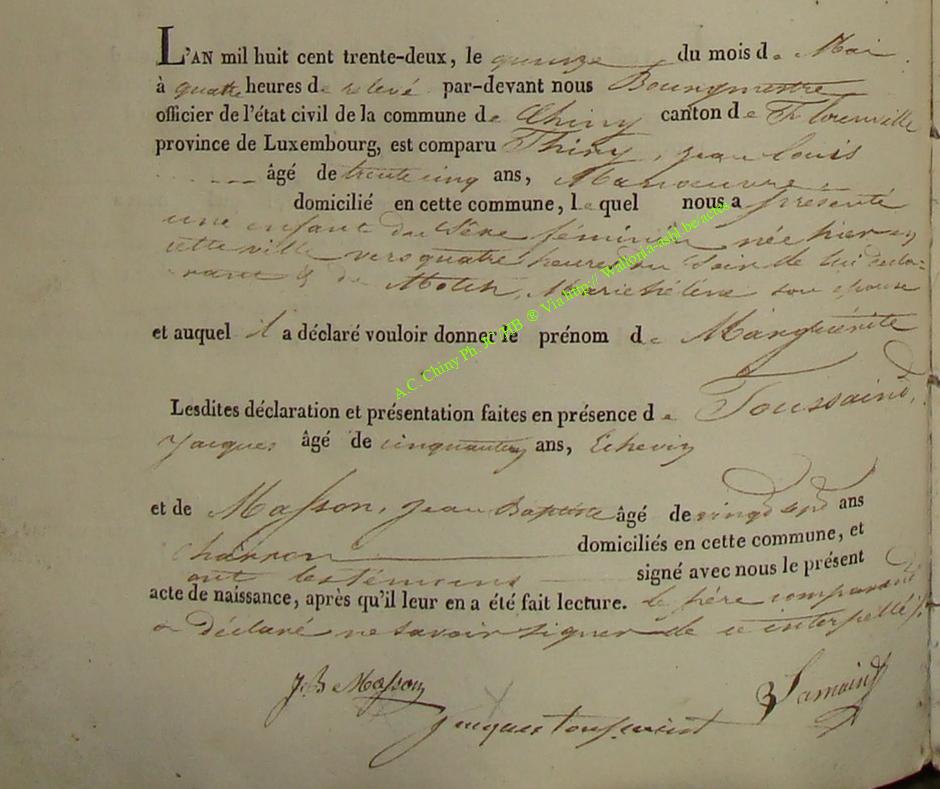 L'AN mil huit cent trente-deux, le quinze du mois de Mai
à quatre heures de relevé par-devant nous Bourgmestre
officier de l'état civil de la commune de Chiny canton de Florenville
province de Luxembourg, est comparu Thiry, jean louis
âgé de trente cinq ans, Manoeuvre
domicilié en cette commune, lequel nous a présenté
une enfant du sexe féminin née hier en
cette ville vers quatre heures du soir de lui décla-
rant & de Marie hélène son épouse
et auquel il a déclaré vouloir donner le prénom de Marguérite
Lesdites déclaration et présentation faites en présence de Toussaint,
jacques âgé de ans, Echevin
et de Masson, jean Baptiste âgé de vingt sept ans
Charron domiciliés en cette commune, et
ont les témoins signé avec nous le présent
acte de naissance, après qu'il leur en a été fait lecture. Le père comparant
a déclaré ne savoir signer de ce interpellé
J. B. Masson
jacques toussaint
A.C. Chiny Ph. JC MB ® Via http:// Wallonia-asbl.be/actes